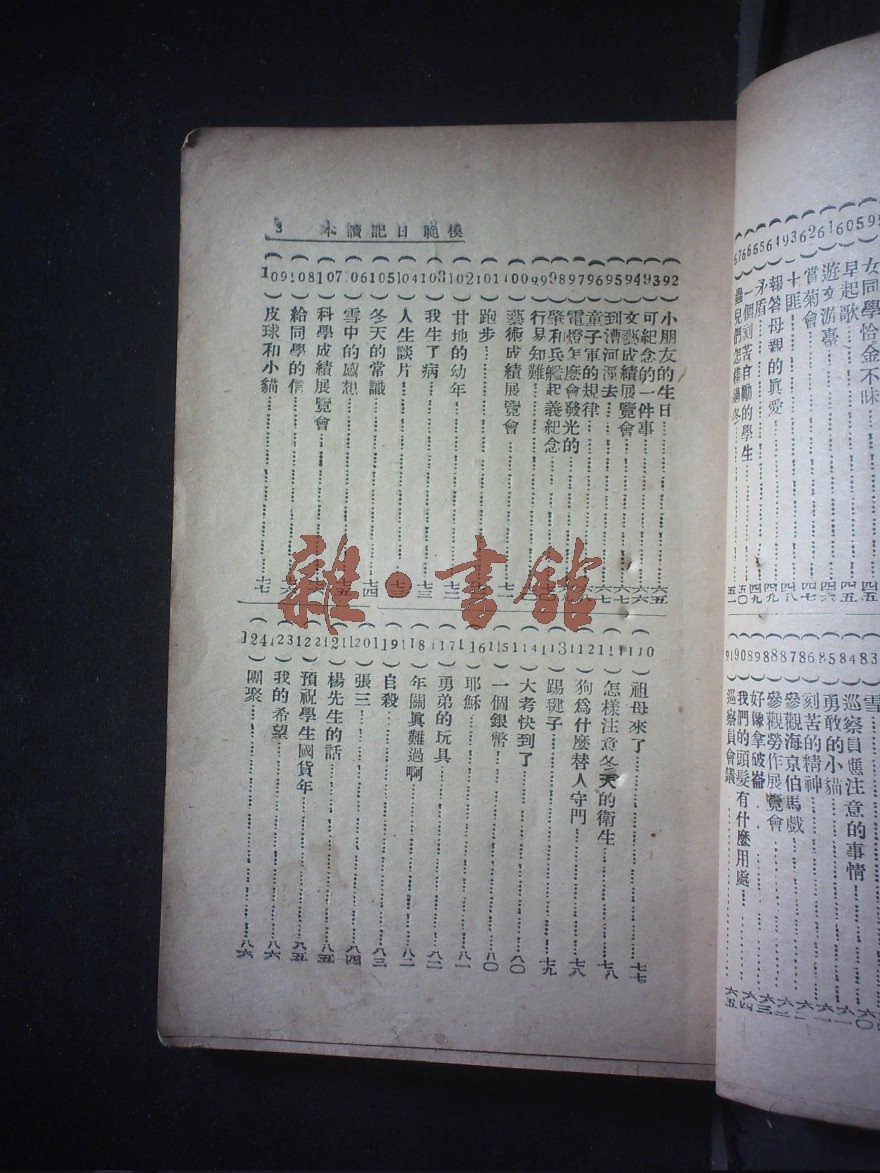 女同學拾金不昧
早起歌……四五
遊文游臺……四五
賞菊會……四六
十匪……四七
報答母親的眞愛……四八
矛盾……四九
一個刻苦自勵的學生……四九
怎樣過冬……五一
雪
巡察員應注意的事情
勇敢的小貓……六一
刻苦的精神
參觀海京伯馬戲
參觀勞作展覽會
好像拿破崙……六三
我們的頭髮有什麼用處……六四
巡察員會議……六五
模範日記讀本 3
(92)小朋友的生日……六五
(93)可紀念的一件事……六六
(94)文藝成績展覽會……六六
(95)到漕河涇去……六七
(96)童子軍的規律……六七
(97)電燈怎麼會發光的
(98)肇和兵艦起義紀念
(99)行易知難
(100)藝術成績展覽會
(101)跑步
(102)甘地的幼年……七二
(103)我生了病……七三
(104)人生談片……七三
(105)冬天的常識……七四
(106)雪中的感想……七五
(107)科學成績展覽會
(108)給同學的信……七六
(109)皮球和小貓……七七
(110)祖母來了……七七
(111)怎樣注意冬天的衛生……七八
(112)狗爲什麼替人守門……七八
(113)踢毽子……七九
(114)大考快到了……八〇
(115)一個銀幣……八〇
(116)耶穌……八一
(117)勇弟的玩具……八二
(118)年關眞難過啊……八二
(119)自殺……八三
(120)張三……八四
(121)楊先生的話……八五
(122)預祝學生國貨年……八五
(123)我的希望……八六
(124)團聚……八六
雜·書館